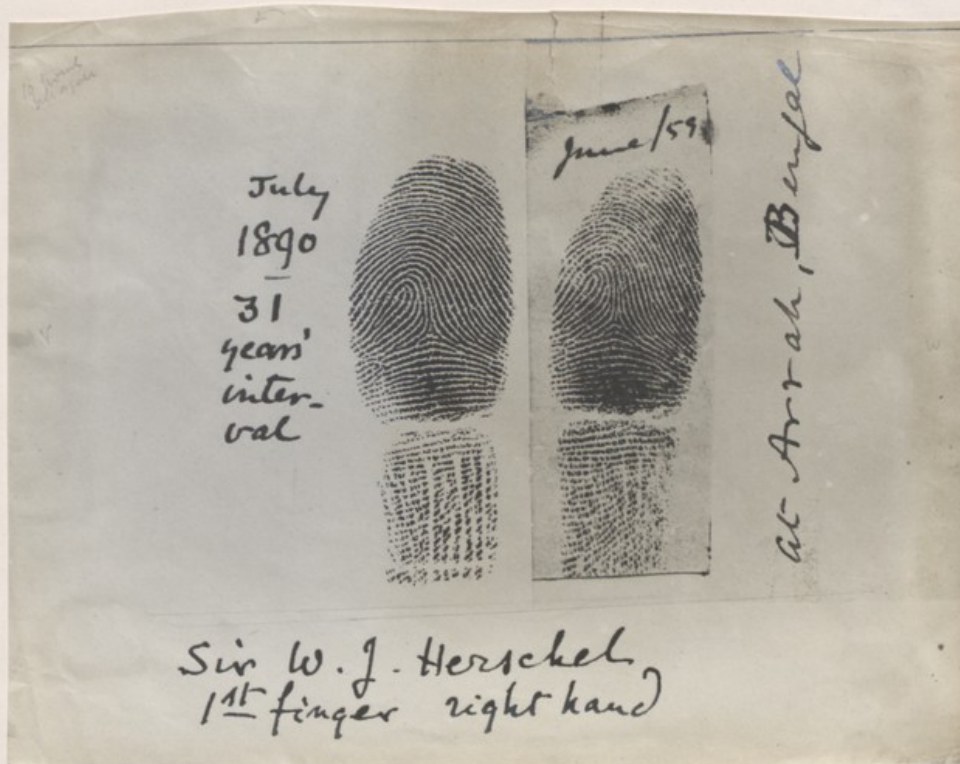 July
1890
31
years'
inter-
val
June/59
at Arrah, Bengal
Sir W. J. Herschel
1st finger right hand